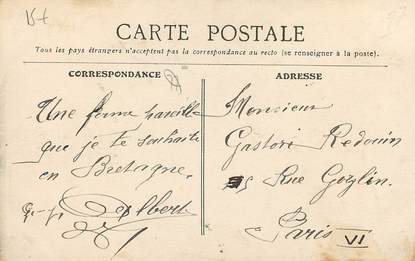 15+
CARTE POSTALE
Tous les pays étrangers n'acceptent pas la correspondance au recto (se renseigner à la poste).
CORRESPONDANCE
ADRESSE
Une ferme
que je te souhaite
en Bretagne.
Albert
Monsieur
Gaston Redouin
Rue
Paris VI